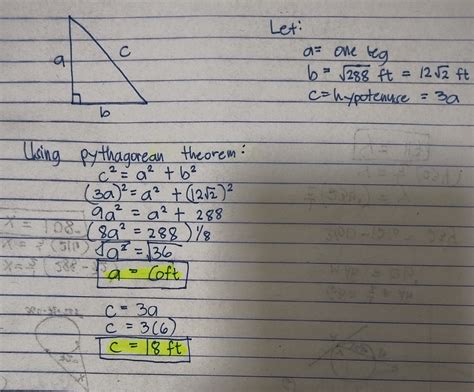 Let:
a = one leg
b = √288 ft = 12√2 ft
c = hypotenuse = 3a
a
c
b
Using pythagorean theorem:
c² = a² + b²
(3a)² = a² + (12√2)²
9a² = a² + 288
(8a² = 288) 1/8
√a² = √36
a = 6ft
c = 3a
c = 3(6)
c = 18 ft